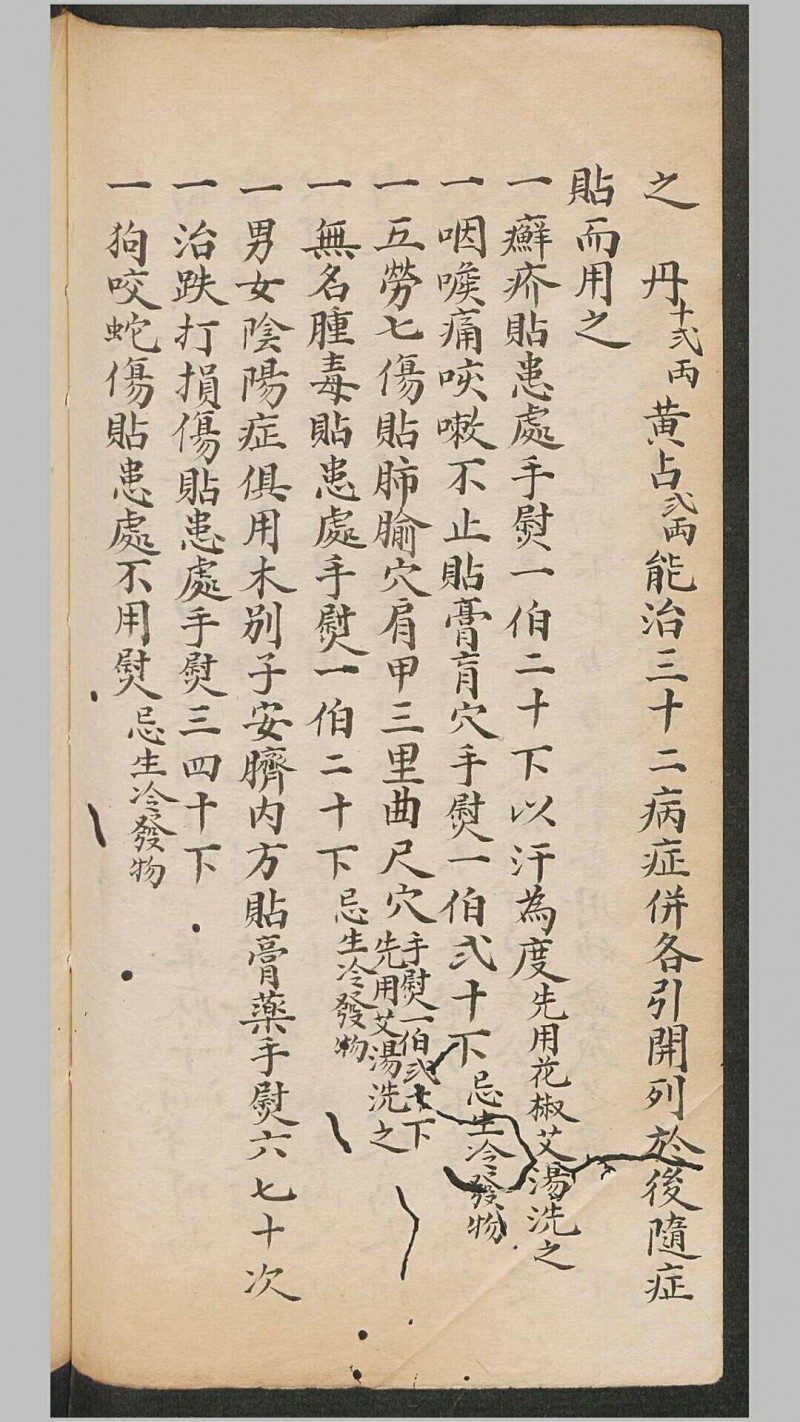 之 丹十弍両黄占弍両能治三十二病症併各引開列於後隨症
貼而用之
一癬疥貼患處手熨一伯二十下以汗為度先用花椒艾湯洗之
一咽喉痛咳嗽不止貼膏肓穴手熨一伯弍十下忌生冷發物
一五勞七傷貼肺腧穴肩甲三里曲尺穴手熨一伯弍十下先用艾湯洗之
一無名腫毒貼患處手熨一伯二十下忌生冷發物
一男女陰陽症俱用木别子安臍内方貼膏藥手熨六七十次
一治跌打損傷貼患處手熨三四十下
一狗咬蛇傷貼患處不用熨忌生冷發物